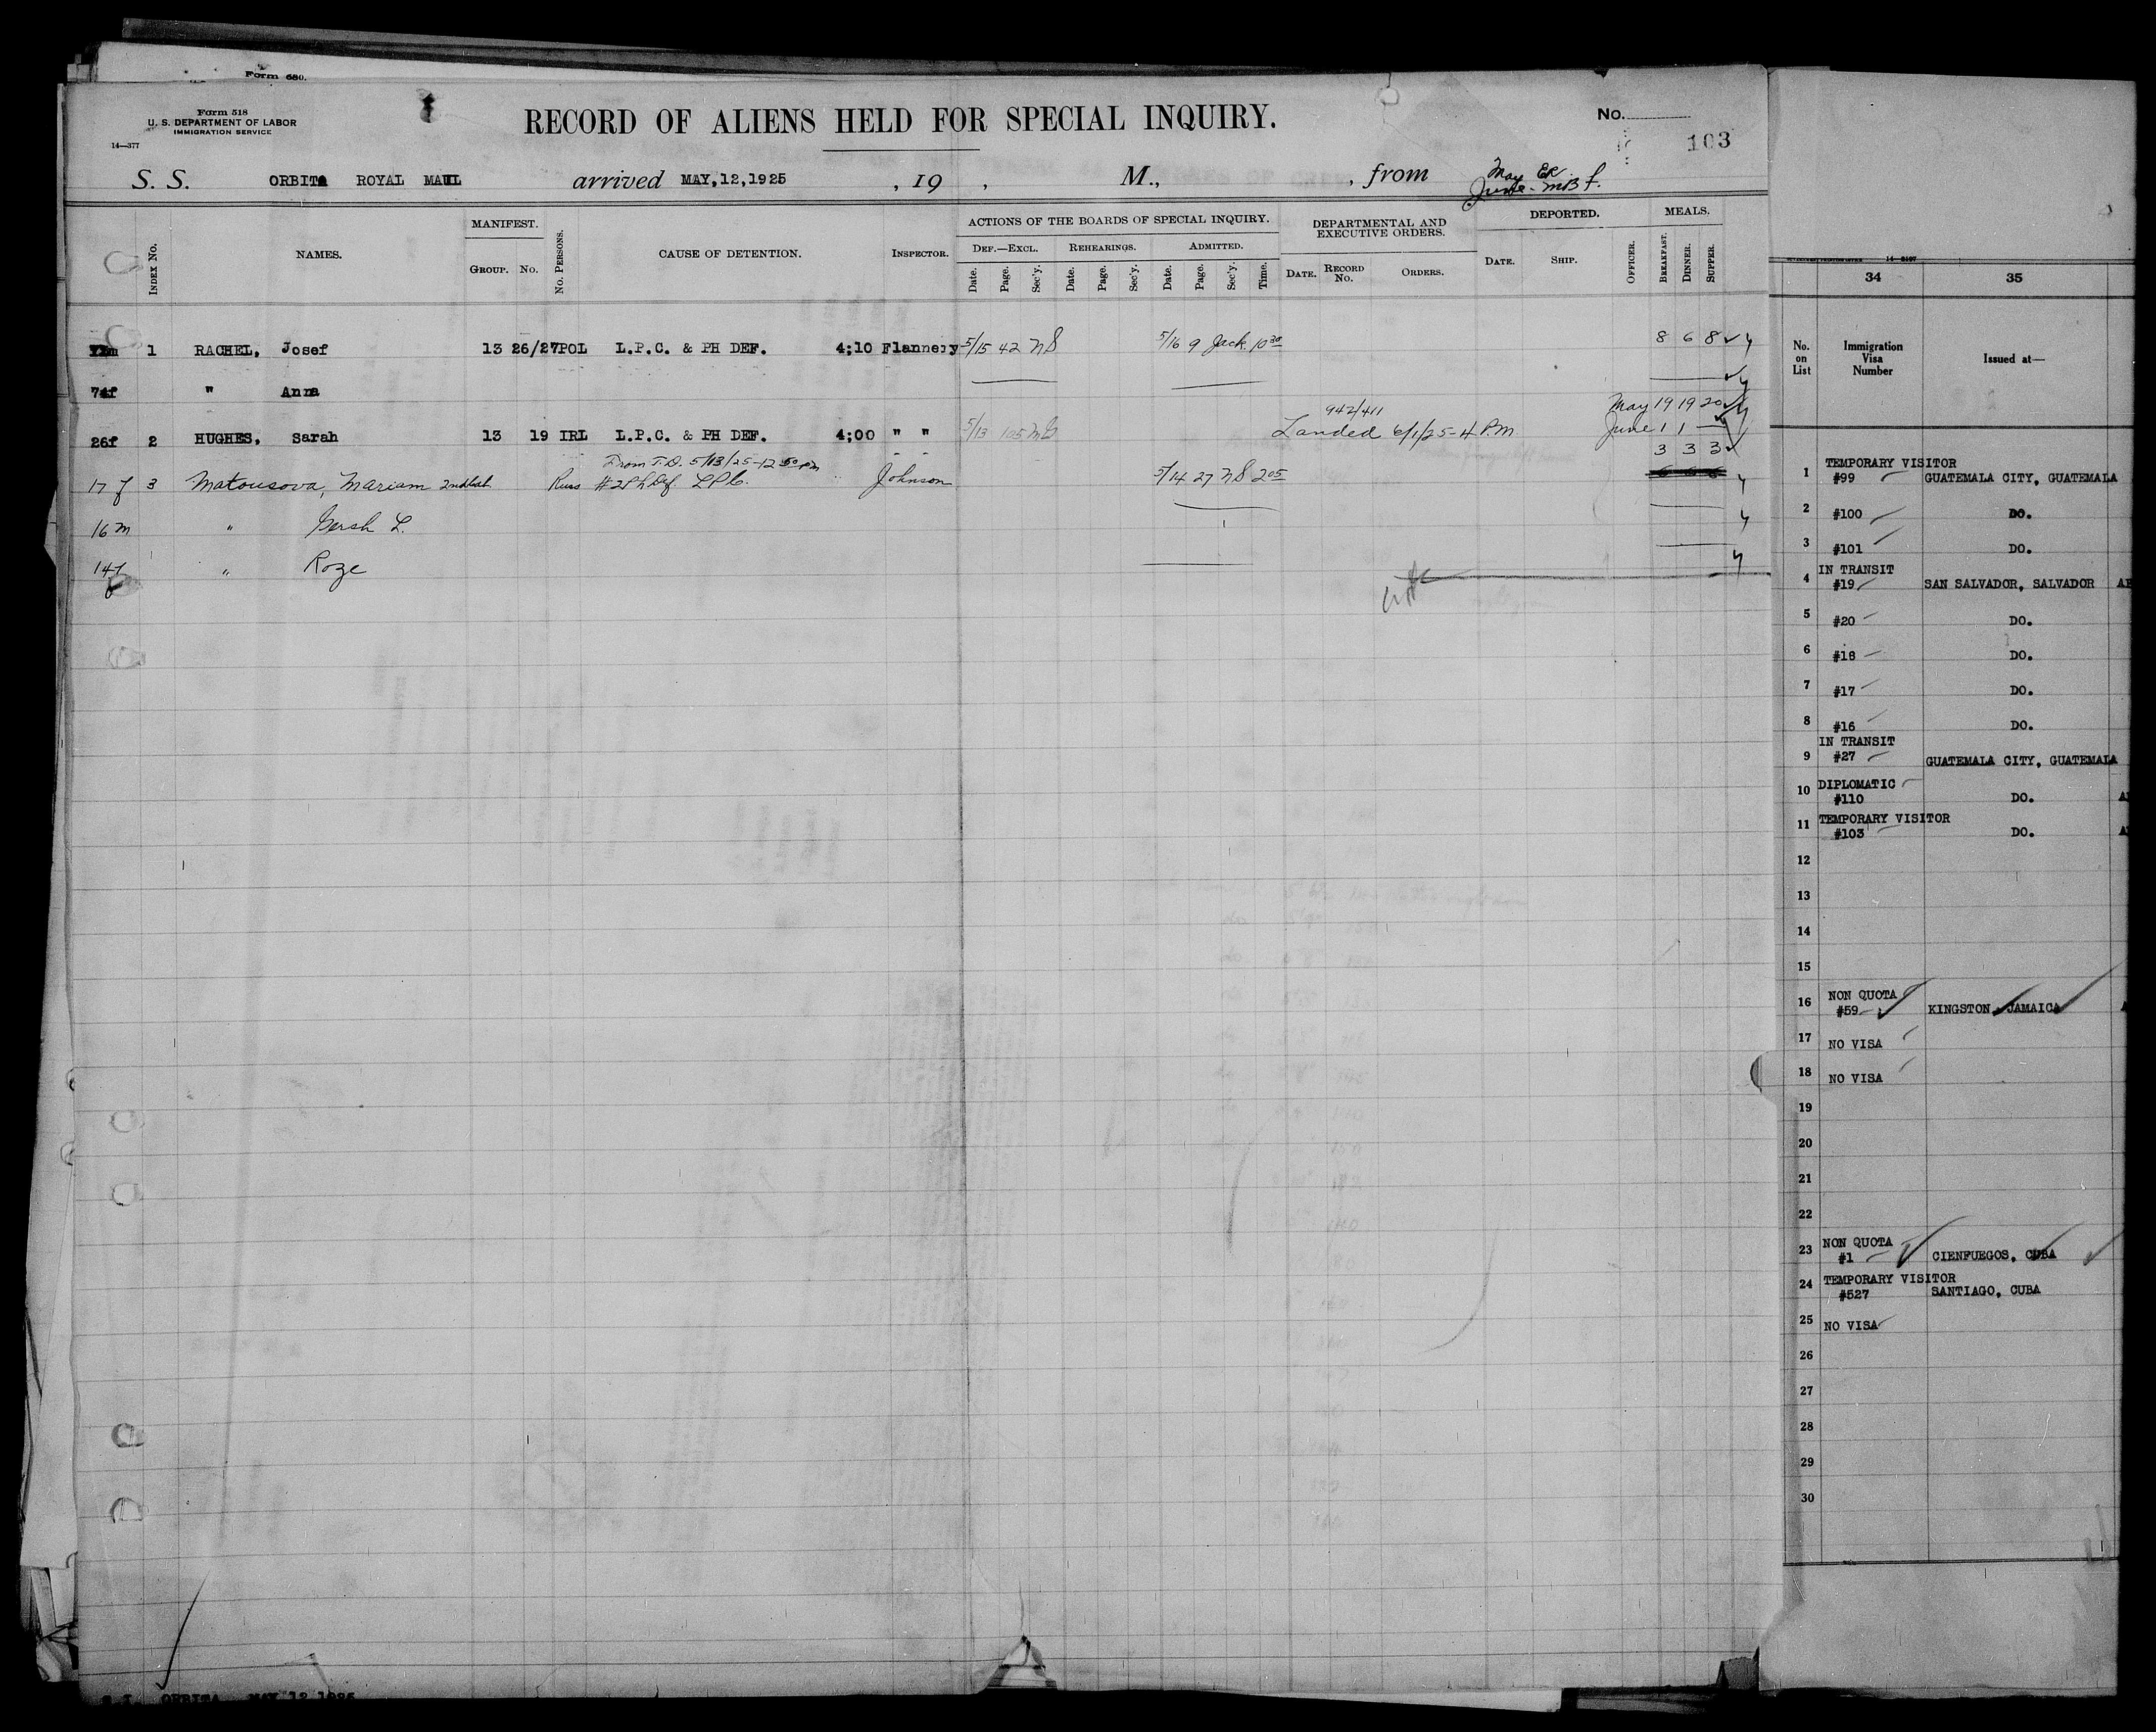 Form 680.
Form 518
U. S. DEPARTMENT OF LABOR
IMMIGRATION SERVICE
14—377
RECORD OF ALIENS HELD FOR SPECIAL INQUIRY.
No.
103
S. S. ORBITA ROYAL MAIL arrived MAY,12,1925 , 19 , M., , from
May ER.
June - MBf.
INDEX No. NAMES. MANIFEST. GROUP. No. No. PERSONS. CAUSE OF DETENTION. INSPECTOR.
ACTIONS OF THE BOARDS OF SPECIAL INQUIRY.
DEF.—EXCL. REHEARINGS. ADMITTED.
Date. Page. Sec'y. Date. Page. Sec'y. Date. Page. Sec'y. Time.
DEPARTMENTAL AND EXECUTIVE ORDERS.
DATE. RECORD No. ORDERS.
DEPORTED.
DATE. SHIP. OFFICER.
MEALS.
BREAKFAST. DINNER. SUPPER.
1 RACHEL, Josef 13 26/27 POL L.P.C. & PH DEF. 4:10 Flannery 5/15 42 NS 5/16 9 Jack 10 30 8 6 8
74f " Anna
942/411
May 19 19 20
26f 2 HUGHES, Sarah 13 19 IRL L.P.C. & PH DEF. 4:00 " " 5/13 105 Landed 6/1/25-4 P.M June 1 1 —
From T.D. 5/13/25-12 50 PM
3 3 3
17 f 3 Matousova, Mariam 2nd Cab. Russ #2 Ph Def. LPC. Johnson 5/14 27 NS 2 05 6 6 6
16 m " Gersh L.
14f " Roze
S I ORBITA MAY 12 1925
34 35
No. on List Immigration Visa Number Issued at—
1 TEMPORARY VISITOR #99 GUATEMALA CITY, GUATEMALA
2 #100 DO.
3 #101 DO.
4 IN TRANSIT #19 SAN SALVADOR, SALVADOR
5 #20 DO.
6 #18 DO.
7 #17 DO.
8 #16 DO.
9 IN TRANSIT #27 GUATEMALA CITY, GUATEMALA
10 DIPLOMATIC #110 DO.
11 TEMPORARY VISITOR #103 DO.
12
13
14
15
16 NON QUOTA #59 KINGSTON, JAMAICA
17 NO VISA
18 NO VISA
19
20
21
22
23 NON QUOTA #1 CIENFUEGOS, CUBA
24 TEMPORARY VISITOR #527 SANTIAGO, CUBA
25 NO VISA
26
27
28
29
30